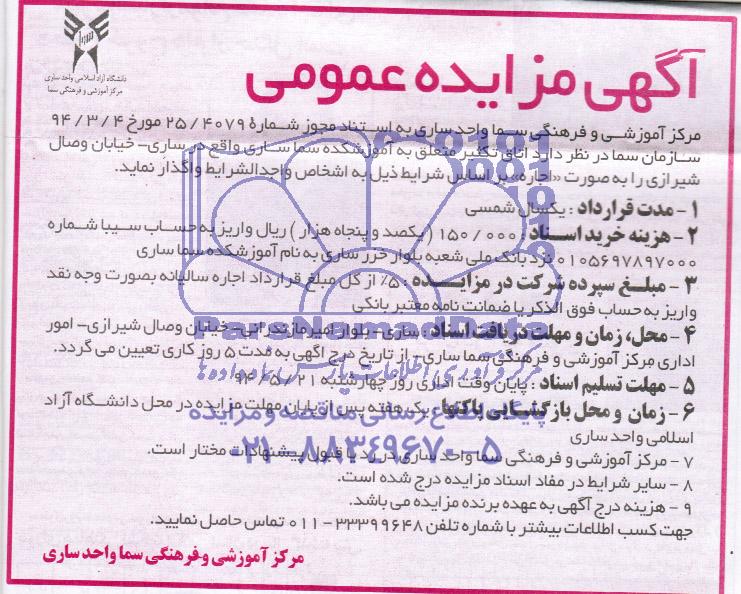 دانشگاه آزاد اسلامی واحد ساری
مرکز آموزشی و فرهنگی سما
آگهی مزایده عمومی
مرکز آموزشی و فرهنگی سما واحد ساری به استناد مجوز شمارهٔ ۲۵/۴۰۷۹ مورخ ۹۴/۳/۴
سازمان سما در نظر دارد اتاق تکثیر متعلق به آموزشکده سما ساری واقع در ساری- خیابان وصال
شیرازی را به صورت «اجاره» بر اساس شرایط ذیل به اشخاص واجدالشرایط واگذار نماید.
۱- مدت قرارداد : یکسال شمسی
۲- هزینه خرید اسناد : ۱۵۰/۰۰۰ (یکصد و پنجاه هزار) ریال واریز به حساب سیبا شماره
۰۱۰۵۶۹۷۸۹۷۰۰۰ نزد بانک ملی شعبه بلوار خزر ساری به نام آموزشکده سما ساری
۳- مبلغ سپرده شرکت در مزایده : ۵٪ از کل مبلغ قرارداد اجاره سالیانه بصورت وجه نقد
واریز به حساب فوق الذکر یا ضمانت نامه معتبر بانکی
۴- محل، زمان و مهلت دریافت اسناد : ساری- بلوار امیرمازندرانی- خیابان وصال شیرازی- امور
اداری مرکز آموزشی و فرهنگی سما ساری- از تاریخ درج آگهی به مدت ۵ روز کاری تعیین می گردد.
۵- مهلت تسلیم اسناد : پایان وقت اداری روز چهارشنبه ۹۴/۵/۲۱
۶- زمان و محل بازگشایی پاکتها : یک هفته پس از پایان مهلت مزایده در محل دانشگاه آزاد
اسلامی واحد ساری
۷- مرکز آموزشی و فرهنگی سما واحد ساری در رد یا قبول پیشنهادات مختار است.
۸- سایر شرایط در مفاد اسناد مزایده درج شده است.
۹- هزینه درج آگهی به عهده برنده مزایده می باشد.
جهت کسب اطلاعات بیشتر با شماره تلفن ۳۳۳۹۹۶۴۸-۰۱۱ تماس حاصل نمایید.
مرکز آموزشی و فرهنگی سما واحد ساری
ParsNamadData
مرکز فرآوری اطلاعات پارس نماد داده ها
پایگاه اطلاع رسانی مناقصه و مزایده
۰۲۱-۸۸۳۴۹۶۷۰-۵